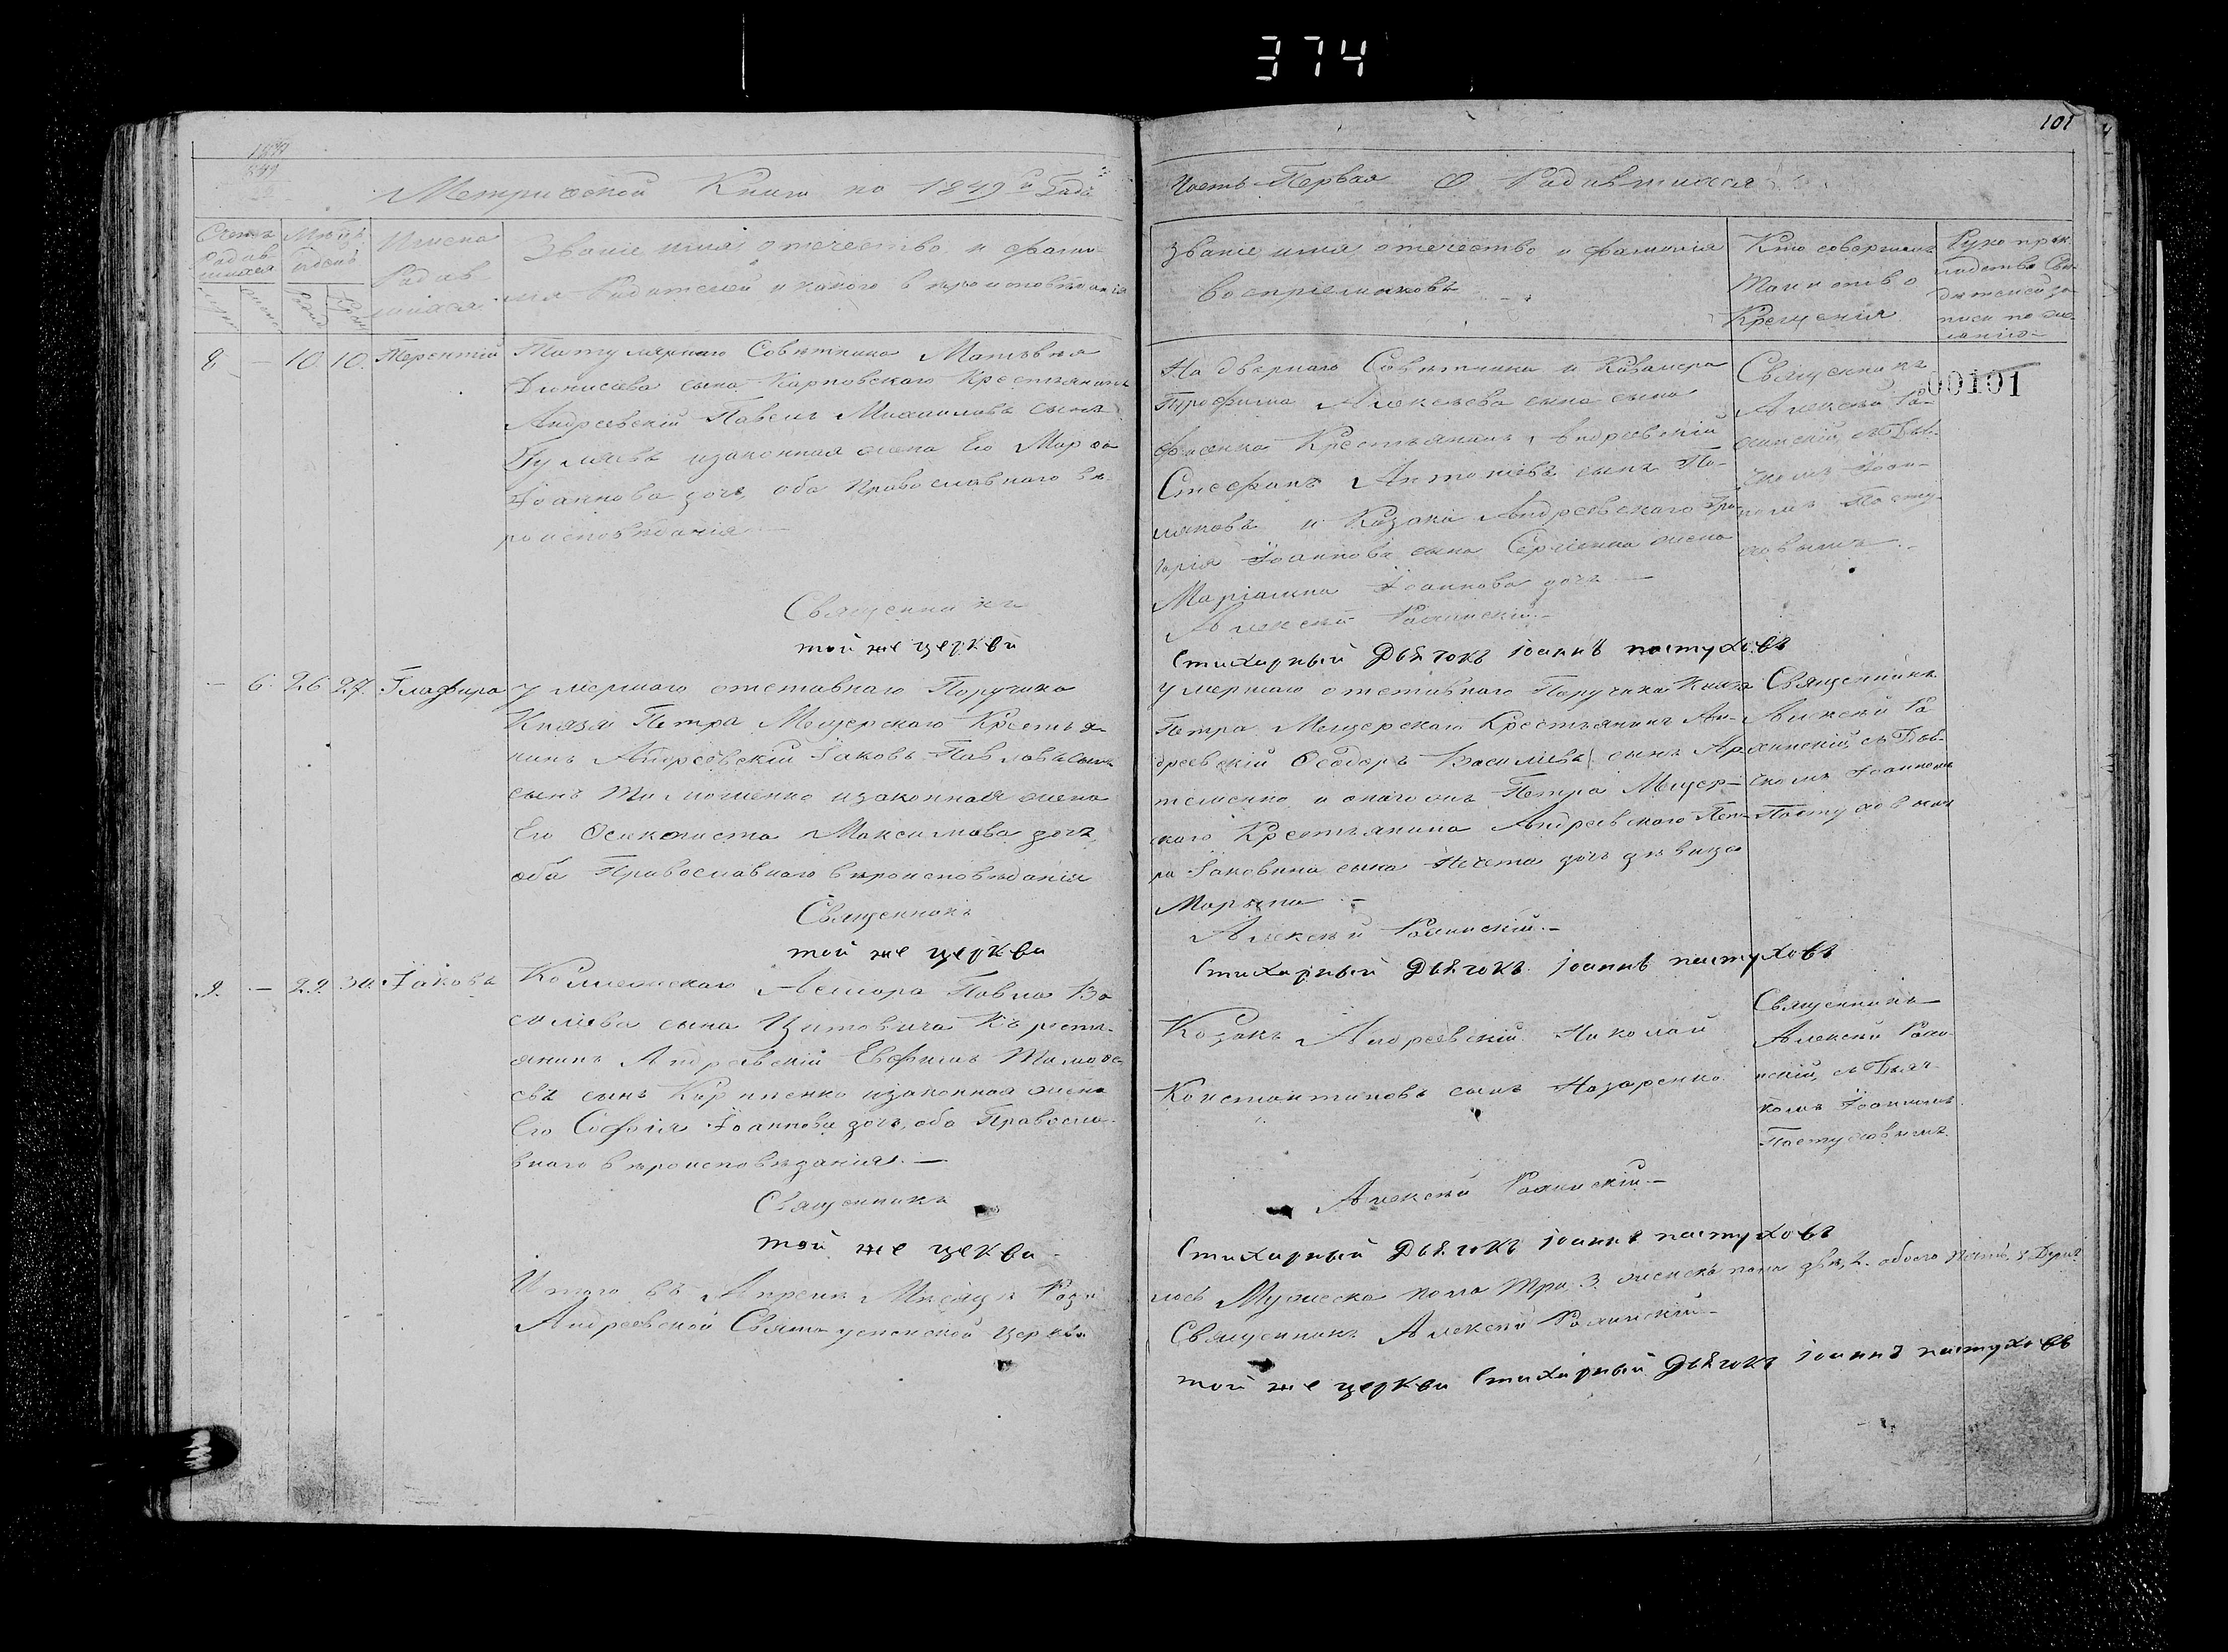 374
101
Метрической Книги по 1849й Годъ
Часть Первая О Родившихся
Счетъ Родившихся
Мѣсяцъ и день
Имена Родившихся
Званіе имя отечество и фами-
лія Родителей и какого вѣроисповѣданія
Званіе имя отечество и фамилія
Воспріемниковъ
Кто совершалъ
Таинство
Крещенія
Руко прик-
ладство Сви-
дѣтелей за-
писи по же-
ланію
8 — 10 10. Терентій
Титулярнаго Совѣтника Матвѣя
Діонисова сына Карповскаго Крестьянинъ
Андреевскій Павелъ Михайловъ сынъ
изаконная жена Его Марфа
Іоаннова дочь, оба Православнаго вѣ-
роисповѣданія —
Священникъ
той же церкви
Надворнаго Совѣтника и Кавалера
Трофима Алексѣева сына сына
Фисенка Крестьянинъ Андреевскій
Стефанъ Антоніевъ сынъ По-
ляковъ и Козака Андреевскаго Гри-
горія Іоаннова сына Сергіенка жена
Маріамна Іоаннова дочь —
Алексѣй Рожинскій.—
Стихарный Дьячокъ Іоаннъ пастуховъ
Священникъ
Алексѣй Ро-
жинскій, съ Дья-
чкомъ Іоан-
номъ Пасту-
ховымъ.—
00101
— 6. 26 27. Глафира
Умершаго отставнаго Поручика
Князя Петра Мещерскаго Крестья-
нинъ Андреевскій Іаковъ Павловъ сынъ
сынъ Тимошенко изаконная жена
Его Феоктиста Максимова дочь,
оба Православнаго вѣроисповѣданія
Священникъ
той же церкви
Умершаго отставнаго Поручика Князя
Петра Мещерскаго Крестьянинъ Ан-
дреевскій Ѳеодоръ Васильевъ сынъ Ар-
теменко и онаго онъ Петра Мещер-
скаго Крестьянина Андреевскаго Пет-
ра Іаковина сына дочь дѣвица
Марѳина —
Алексѣй Рожинскій.—
Стихарный Дьячокъ Іоаннъ пастуховъ
Священникъ
Алексѣй Ро-
жинскій, съ Дья-
чкомъ Іоанномъ
Пастуховымъ
9. — 29. 30. Іаковъ
Коллежскаго Асесора Павла Ва-
силіева сына Цитовича Кърест-
янинъ Андреевскій Евфимъ Тимофе-
евъ сынъ Карпенко изаконная жена
Его Софія Іоаннова дочь, оба Правосла-
внаго вѣроисповѣданія.—
Священникъ
той же цекви
Козакъ Андреевскій Николай
Константиновъ сынъ Назаренко
Алексѣй Рожинскій.—
Стихарный Дьячокъ Іоаннъ пастуховъ
Священникъ
Алексѣй Рожи-
нскій, съ Дьяч-
комъ Іоанномъ
Пастуховымъ
Итого въ Апрелѣ Мѣсяцѣ Роди-
лось Мужеска пола три 3 женска пола двѣ, 2. обоего пять, 5. Душъ
Андреевской Свято успенской церкви
Священникъ Алексѣй Рожинскій—
той же церкви Стихарный Дьячокъ Іоаннъ пастуховъ